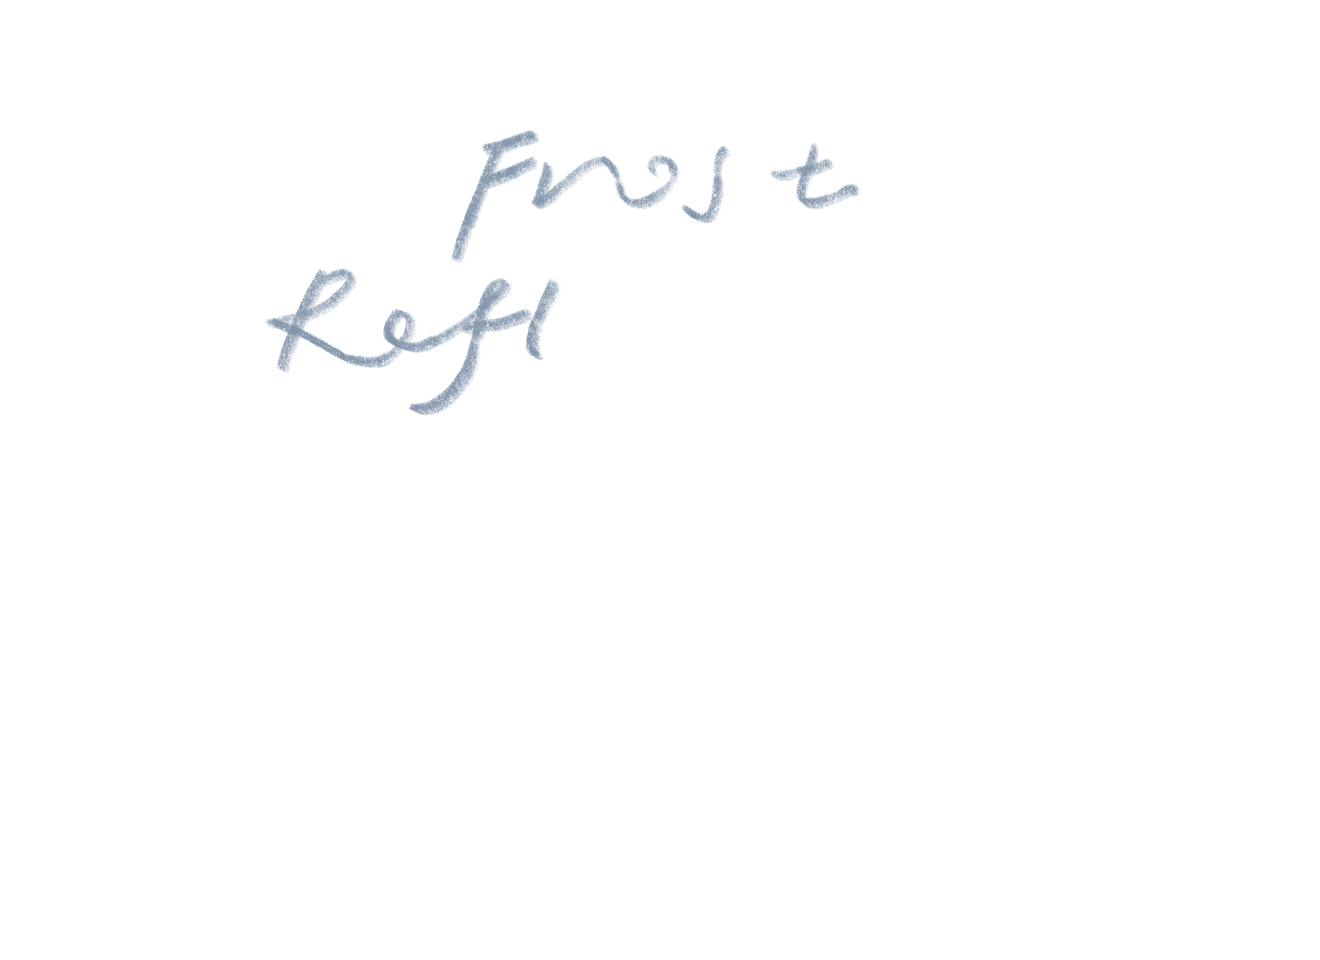 Frost
Refl